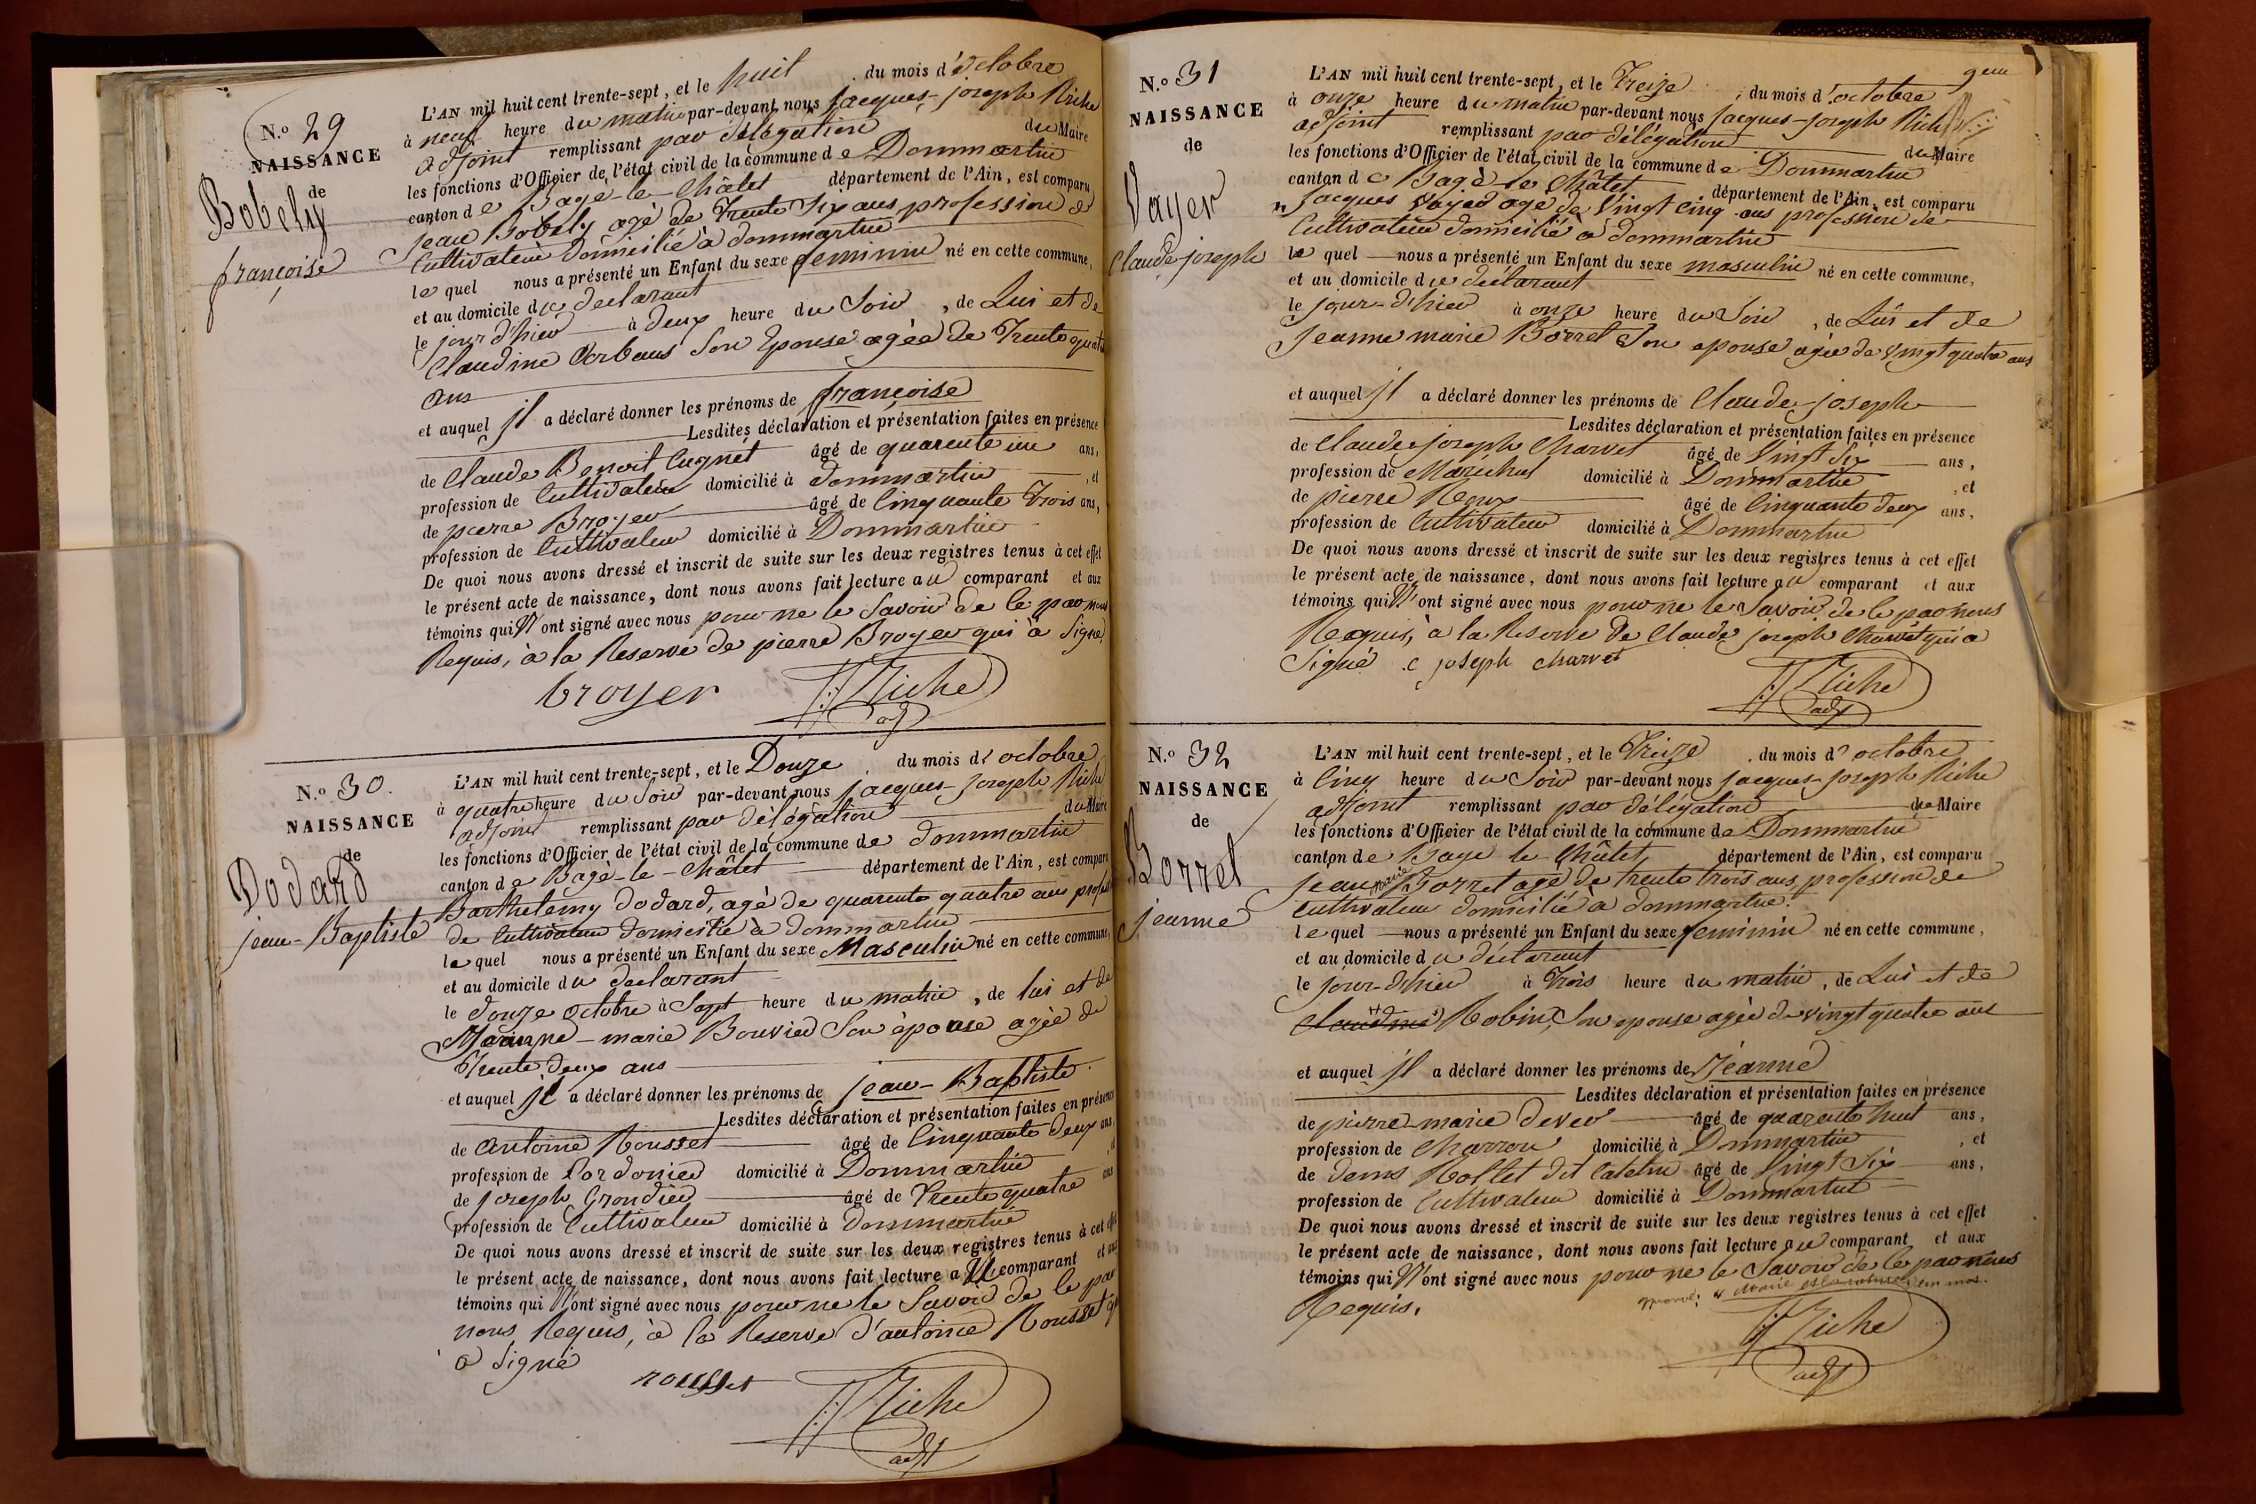 N.o 29
NAISSANCE
de
Bobely
françoise
L'AN mil huit cent trente-sept, et le huit du mois d'octobre
à neuf heure du matin par-devant nous jacques-joseph Riche
adjoint remplissant par délégation du Maire
les fonctions d'Officier de l'état civil de la commune de Dommartin
canton de Bagé-le-Châtel département de l'Ain, est comparu
jean Bobely agé de Trente Six ans profession de
Cultivateur domicilié à dommartin
le quel nous a présenté un Enfant du sexe feminin né en cette commune,
et au domicile du declarant
le jour d'hier à deux heure du Soir, de Lui et de
Claudine Son Epouse agée de Trente quatre
ans
et auquel jl a déclaré donner les prénoms de françoise
Lesdites déclaration et présentation faites en présence
de Claude Benoit Cugnet âgé de quarente un ans,
profession de Cultivateur domicilié à dommartin, et
de pierre Broyer âgé de Cinquante Trois ans,
profession de Cultivateur domicilié à Dommartin
De quoi nous avons dressé et inscrit de suite sur les deux registres tenus à cet effet
le présent acte de naissance, dont nous avons fait lecture au comparant et aux
témoins qui N'ont signé avec nous pour ne le Savoir de le par nous
Requis, à la Reserve de pierre Broyer qui à Signé
broyer JJ Riche
adjt
N.o 30.
NAISSANCE
de
Dodard
jean-Baptiste
L'AN mil huit cent trente-sept, et le Douze du mois d'octobre
à quatre heure du Soir par-devant nous jacques-joseph Riche
adjoint remplissant par délégation du Maire
les fonctions d'Officier de l'état civil de la commune de dommartin
canton de Bagé-le-Châtel département de l'Ain, est comparu
Barthelemy Dodard, agé de quarente quatre ans profession
de Cultivateur domicilié à dommartin
le quel nous a présenté un Enfant du sexe Masculin né en cette commune,
et au domicile du declarant
le douze octobre à Sept heure du matin, de lui et de
marie Bouvier Son épouse agée de
Trente deux ans
et auquel jl a déclaré donner les prénoms de jean-Baptiste
Lesdites déclaration et présentation faites en présence
de antoine Rousset âgé de Cinquante deux ans,
profession de Cordonier domicilié à Dommartin, et
de joseph Grondier âgé de Trente quatre ans
profession de Cultivateur domicilié à dommartin
De quoi nous avons dressé et inscrit de suite sur les deux registres tenus à cet effet
le présent acte de naissance, dont nous avons fait lecture au comparant et aux
témoins qui N'ont signé avec nous pour ne le Savoir de le par
nous Requis, à la Reserve d'antoine Rousset qui
a Signé
rousset JJ Riche
adjt
N.o 31
NAISSANCE
de
Vayer
Claude joseph
L'AN mil huit cent trente-sept, et le Treize du mois d'octobre
à onze heure du matin par-devant nous jacques-joseph Riche
adjoint remplissant par délégation du Maire
les fonctions d'Officier de l'état civil de la commune de Dommartin
canton de Bagé-le Châtel département de l'Ain, est comparu
jacques Vayer agé de Vingt Cinq ans profession de
Cultivateur domicilié à dommartin
le quel nous a présenté un Enfant du sexe masculin né en cette commune,
et au domicile du déclarant
le jour-d'hier à onze heure du Soir, de Lui et de
Jeanne marie Borret Son epouse agée de vingt quatre ans
et auquel jl a déclaré donner les prénoms de Claude-joseph
Lesdites déclaration et présentation faites en présence
de Claude joseph Charvet âgé de Vingt Six ans,
profession de Maréchal domicilié à Dommartin, et
de pierre Roux âgé de Cinquante deux ans,
profession de Cultivateur domicilié à Dommartin
De quoi nous avons dressé et inscrit de suite sur les deux registres tenus à cet effet
le présent acte de naissance, dont nous avons fait lecture au comparant et aux
témoins qui N'ont signé avec nous pour ne le Savoir de le par nous
Requis, à la Reserve de Claude joseph Charvet qui a
Signé c joseph charvet JJ Riche
adjt
N.o 32
NAISSANCE
de
Borret
jeanne
L'AN mil huit cent trente-sept, et le Treize du mois d'octobre
à Cinq heure du Soir par-devant nous jacques-joseph Riche
adjoint remplissant par délégation du Maire
les fonctions d'Officier de l'état civil de la commune de Dommartin
canton de Bagé le Châtel département de l'Ain, est comparu
jean marie Borret agé de trente trois ans, profession de
Cultivateur domicilié à dommartin.
le quel nous a présenté un Enfant du sexe feminin né en cette commune,
et au domicile du déclarant
le jour-d'hier à Trois heure du matin, de Lui et de
Claudine Robin, Son epouse agée de vingt quatre ans
et auquel jl a déclaré donner les prénoms de Jeanne
Lesdites déclaration et présentation faites en présence
de pierre-marie âgé de quarente huit ans,
profession de Charron domicilié à Dommartin, et
de denis dit Catelin âgé de Vingt Six ans,
profession de Cultivateur domicilié à Dommartin
De quoi nous avons dressé et inscrit de suite sur les deux registres tenus à cet effet
le présent acte de naissance, dont nous avons fait lecture au comparant et aux
témoins qui N'ont signé avec nous pour ne le Savoir de le par nous
Requis.
JJ Riche
adjt